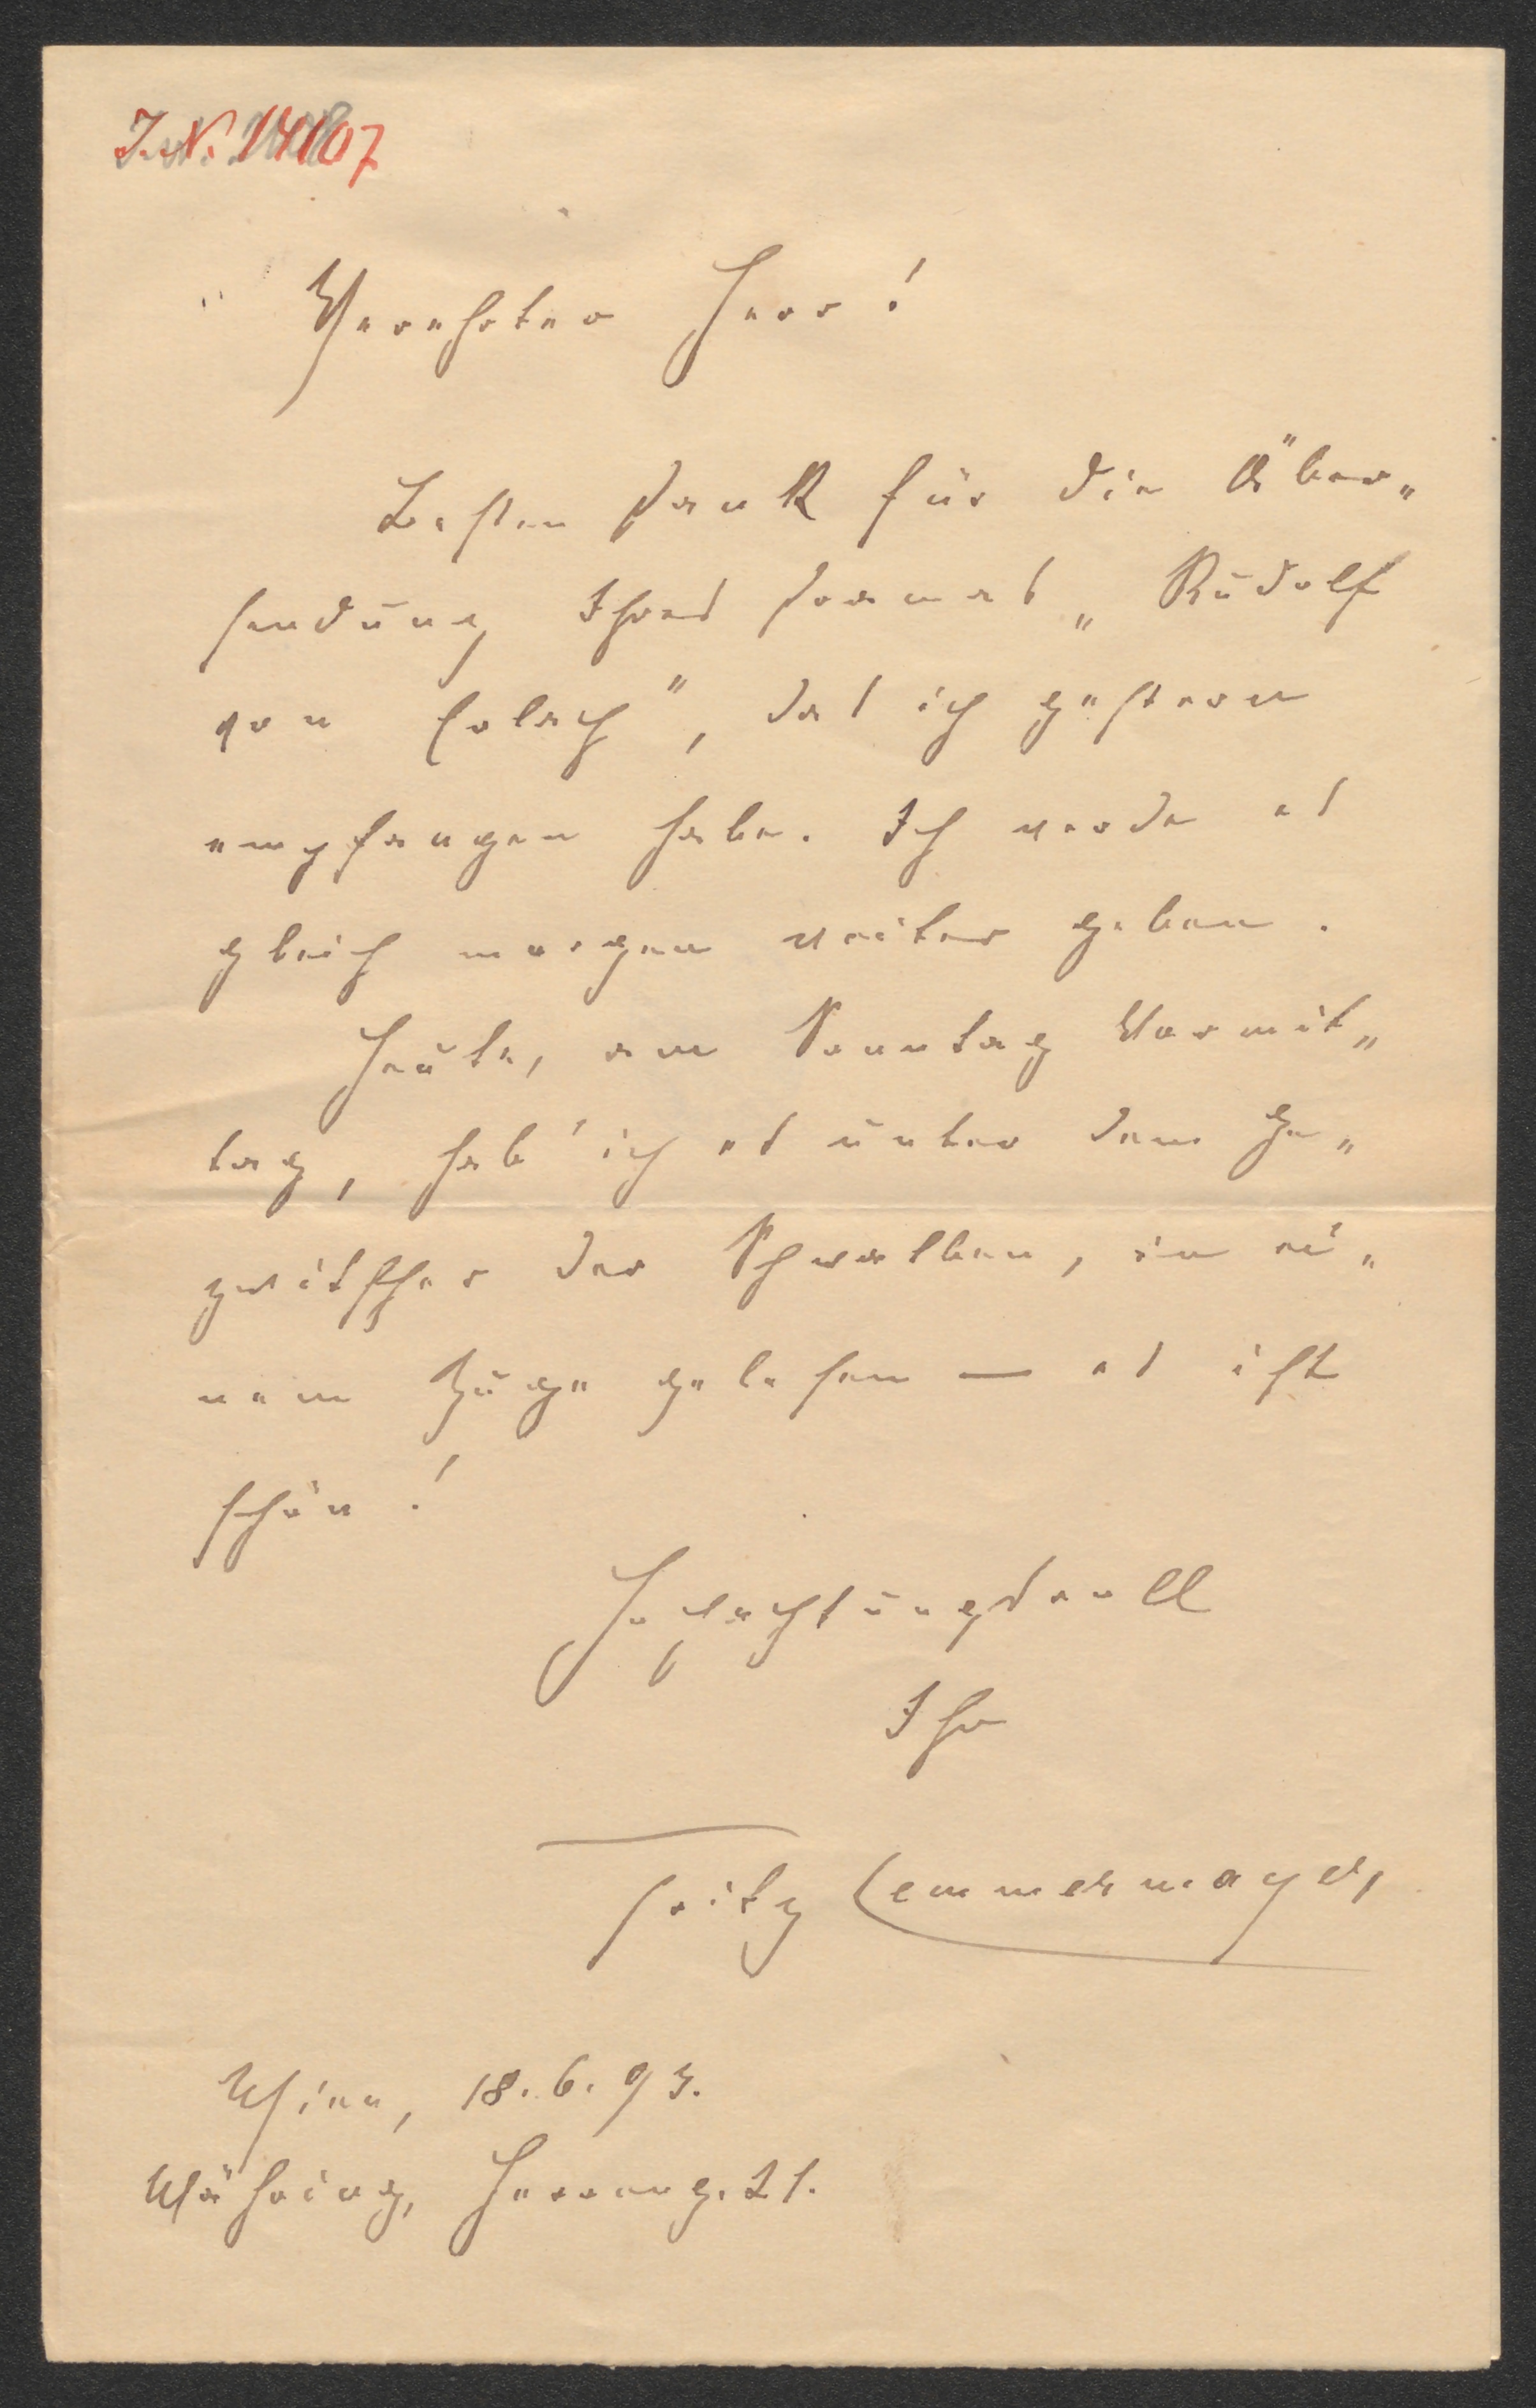 J. N. 14107
Verehrter Herr!
Besten Dank für die Über„
sendung Ihres Dramas „Rudolf
von Erlach", das ich gestern
empfangen habe. Ich werde es
gleich morgen weiter geben.
Heute, am Sonntag Vormit„
tag, hab' ich es unter dem Ge„
zwitscher der Schwalben, in ei„
nem Zuge gelesen — es ist
schön!
Hochachtungsvoll
Ihr
Fritz Lemmermayer,
Wien, 18.6.93.
Währing, Herreng. 21.